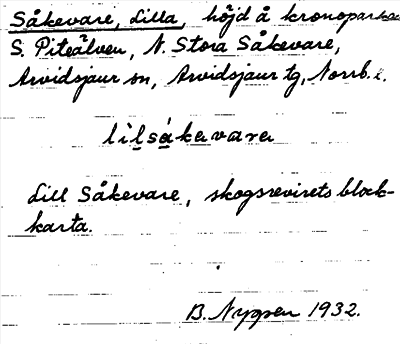 Såkevare, Lilla, höjd å kronoparken
S. Piteälven, N. Stora Såkevare,
Arvidsjaur sn, Arvidsjaur tg, Norrb. l.
lilsåkavara
Lill Såkevare, skogsrevirets block-
karta.
B. Nygren 1932.